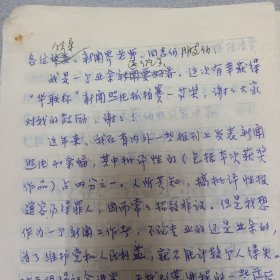 各位领导、新闻界老师、同志们、朋友们
我是一个业余新闻爱好者，这次有幸获得
“华联杯”新闻照比拍摄一等奖，谢谢大家
对我的鼓励，谢谢
近年来，我在省内外一些报刊上发表新闻
照比 余幅，其中批评性的（包括本次获奖
作品）占四分之一。人所共知，搞批评性报
道容易得罪人，因而常常招致非议。但是我想
作为一个新闻工作者，不论专业的还是业余的，
为了维护党和人民利益，就不能计较个人得失